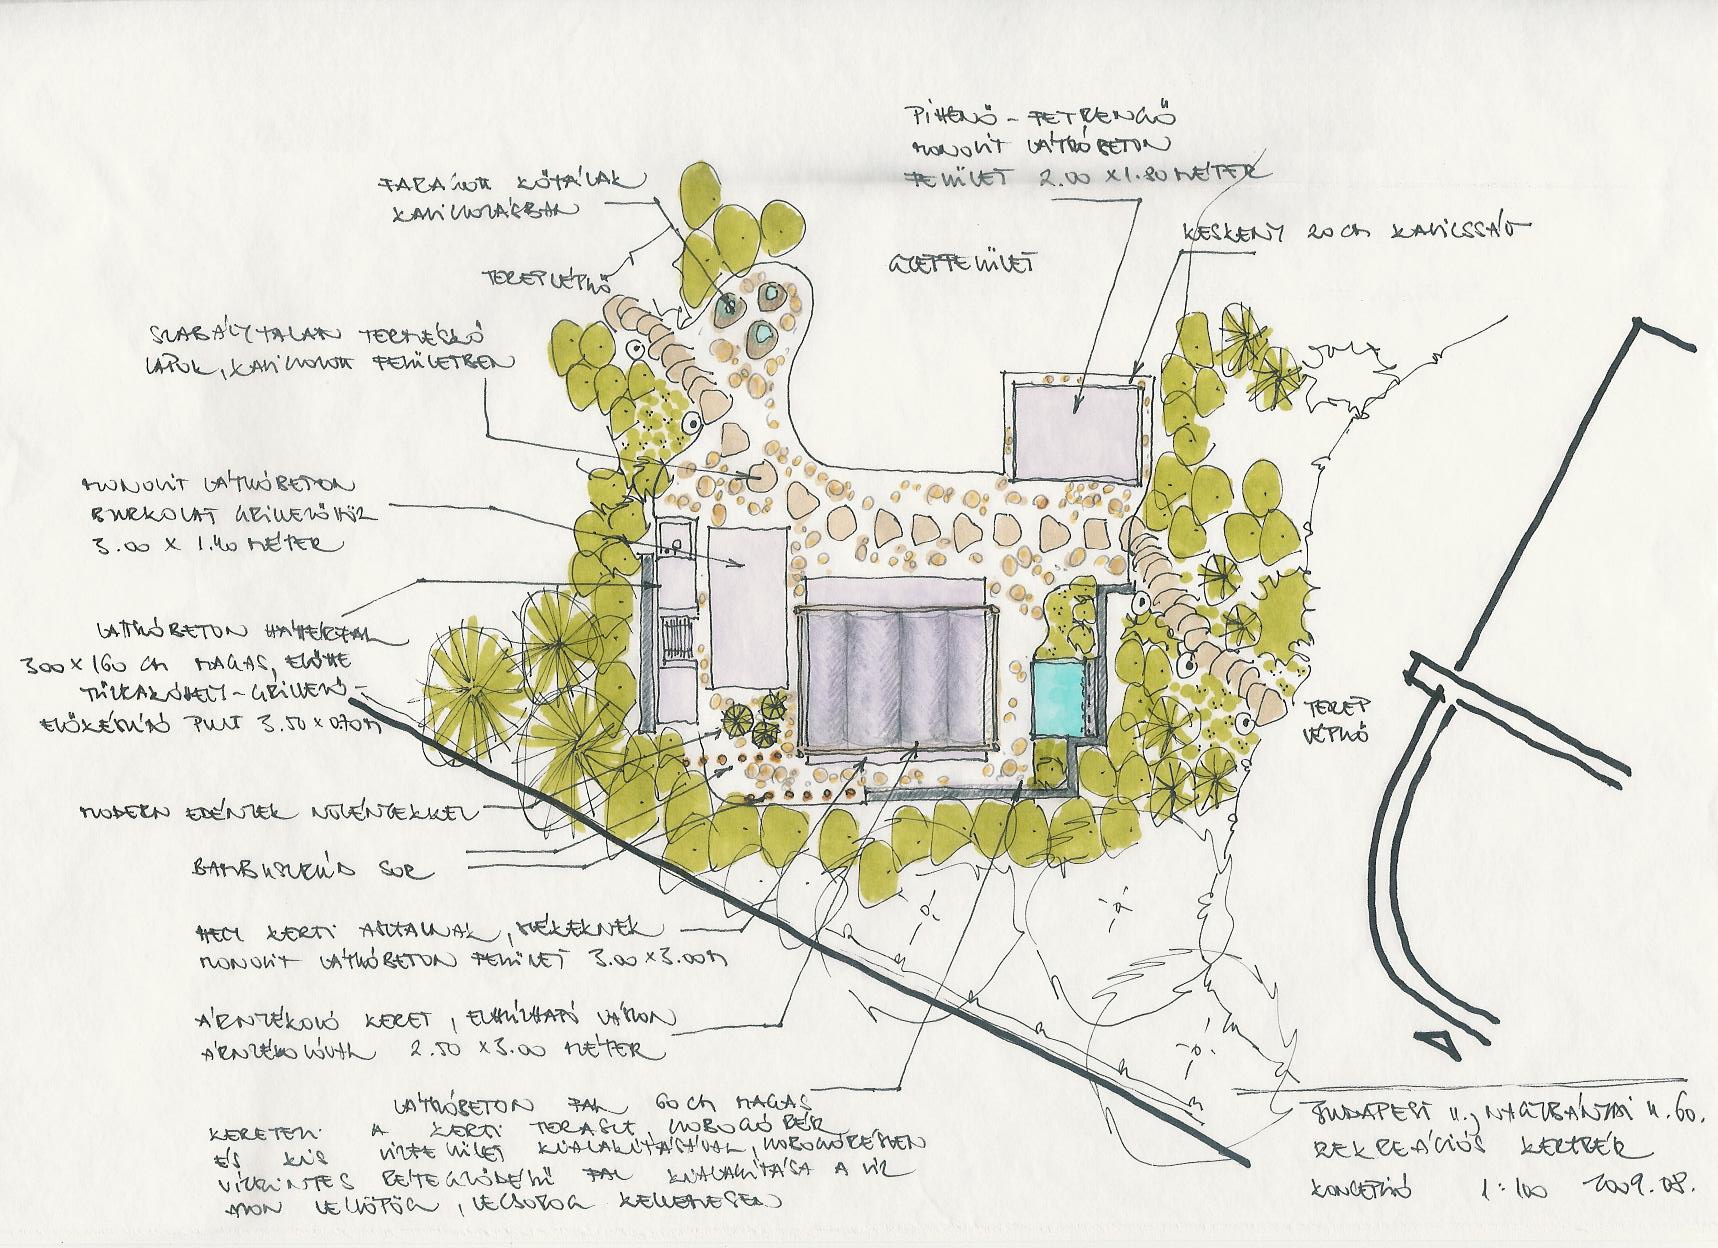 PIHENŐ - FETRENGŐ
MONOLIT LÁTSZÓBETON
FELÜLET 2.00 X 1.80 MÉTER
FARAGOTT KŐTÁLAK
KAVICSOZÁSBAN
KESKENY 20 CM KAVICSSÁV
GYEPFELÜLET
TEREPLÉPKŐ
SZABÁLYTALAN TERMÉSKŐ
LAPOK, KAVICSOLT FELÜLETBEN
MONOLIT LÁTSZÓBETON
BURKOLAT GRILLEZŐHÖZ
3.00 X 1.40 MÉTER
LÁTSZÓBETON HÁTTÉRFAL
300 X 160 CM MAGAS, ELŐTTE
TŰZRAKÓHELY - GRILLEZŐ -
ELŐKÉSZÍTŐ PULT 3.50 X 0.70 M
TEREP
LÉPKŐ
MODERN EDÉNYEK NÖVÉNYEKKEL
BAMBUSZRÚD SOR
HELY KERTI ASZTALNAK, SZÉKEKNEK
MONOLIT LÁTSZÓBETON FELÜLET 3.00 X 3.00 M
ÁRNYÉKOLÓ KERET, ELHÚZHATÓ VÁSZON
ÁRNYÉKOLÓVAL 2.50 X 3.00 MÉTER
LÁTSZÓBETON FAL 60 CM MAGAS
KERETEZI A KERTI TERASZT, CSOBOGÓ TÉR
ÉS KIS VÍZFELÜLET KIALAKÍTÁSÁVAL, CSOBOGÓRÉSZEN
VÍZSZINTES RÉTEGZŐDÉSŰ FAL KIALAKÍTÁSA A VÍZ
AZON LECSÖPÖG, LECSOROG KELLEMESEN
BUDAPEST II., NAGYBÁNYAI U. 60.
REKREÁCIÓS KERTRÉSZ
KONCEPCIÓ 1:100 2009.08.